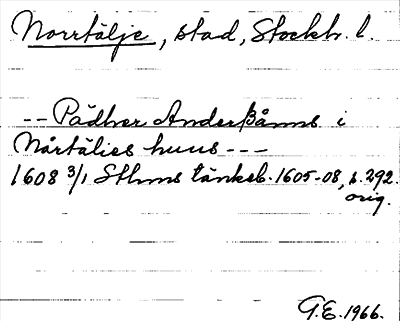 Norrtälje, stad, Stockh. l.
-- Pädher Anderßåns i
Nårtälies huus ---
1608 3/1 Sthms tänkeb. 1605-08, s. 292.
orig.
G.E. 1966.